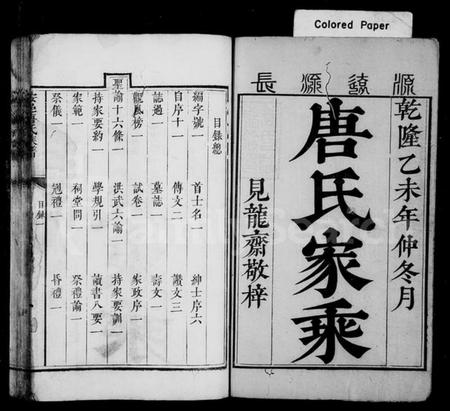 Colored Paper
源遠源長
乾隆乙未年仲冬月
唐氏家乘
見龍齋敬梓
目錄總
編字號一 首士名一 紳士序六
自序十一 傳文二 叢文三
誌過一 墓誌一 壽文一
觀風榜 試卷一 家政序一
聖諭十六條一 洪武六諭一 持家要訓一
持家要約一 學規引一 讀書八要一
家範一 祠堂問一 祭禮諭一
祭儀一 冠禮一 昏禮一
目錄一